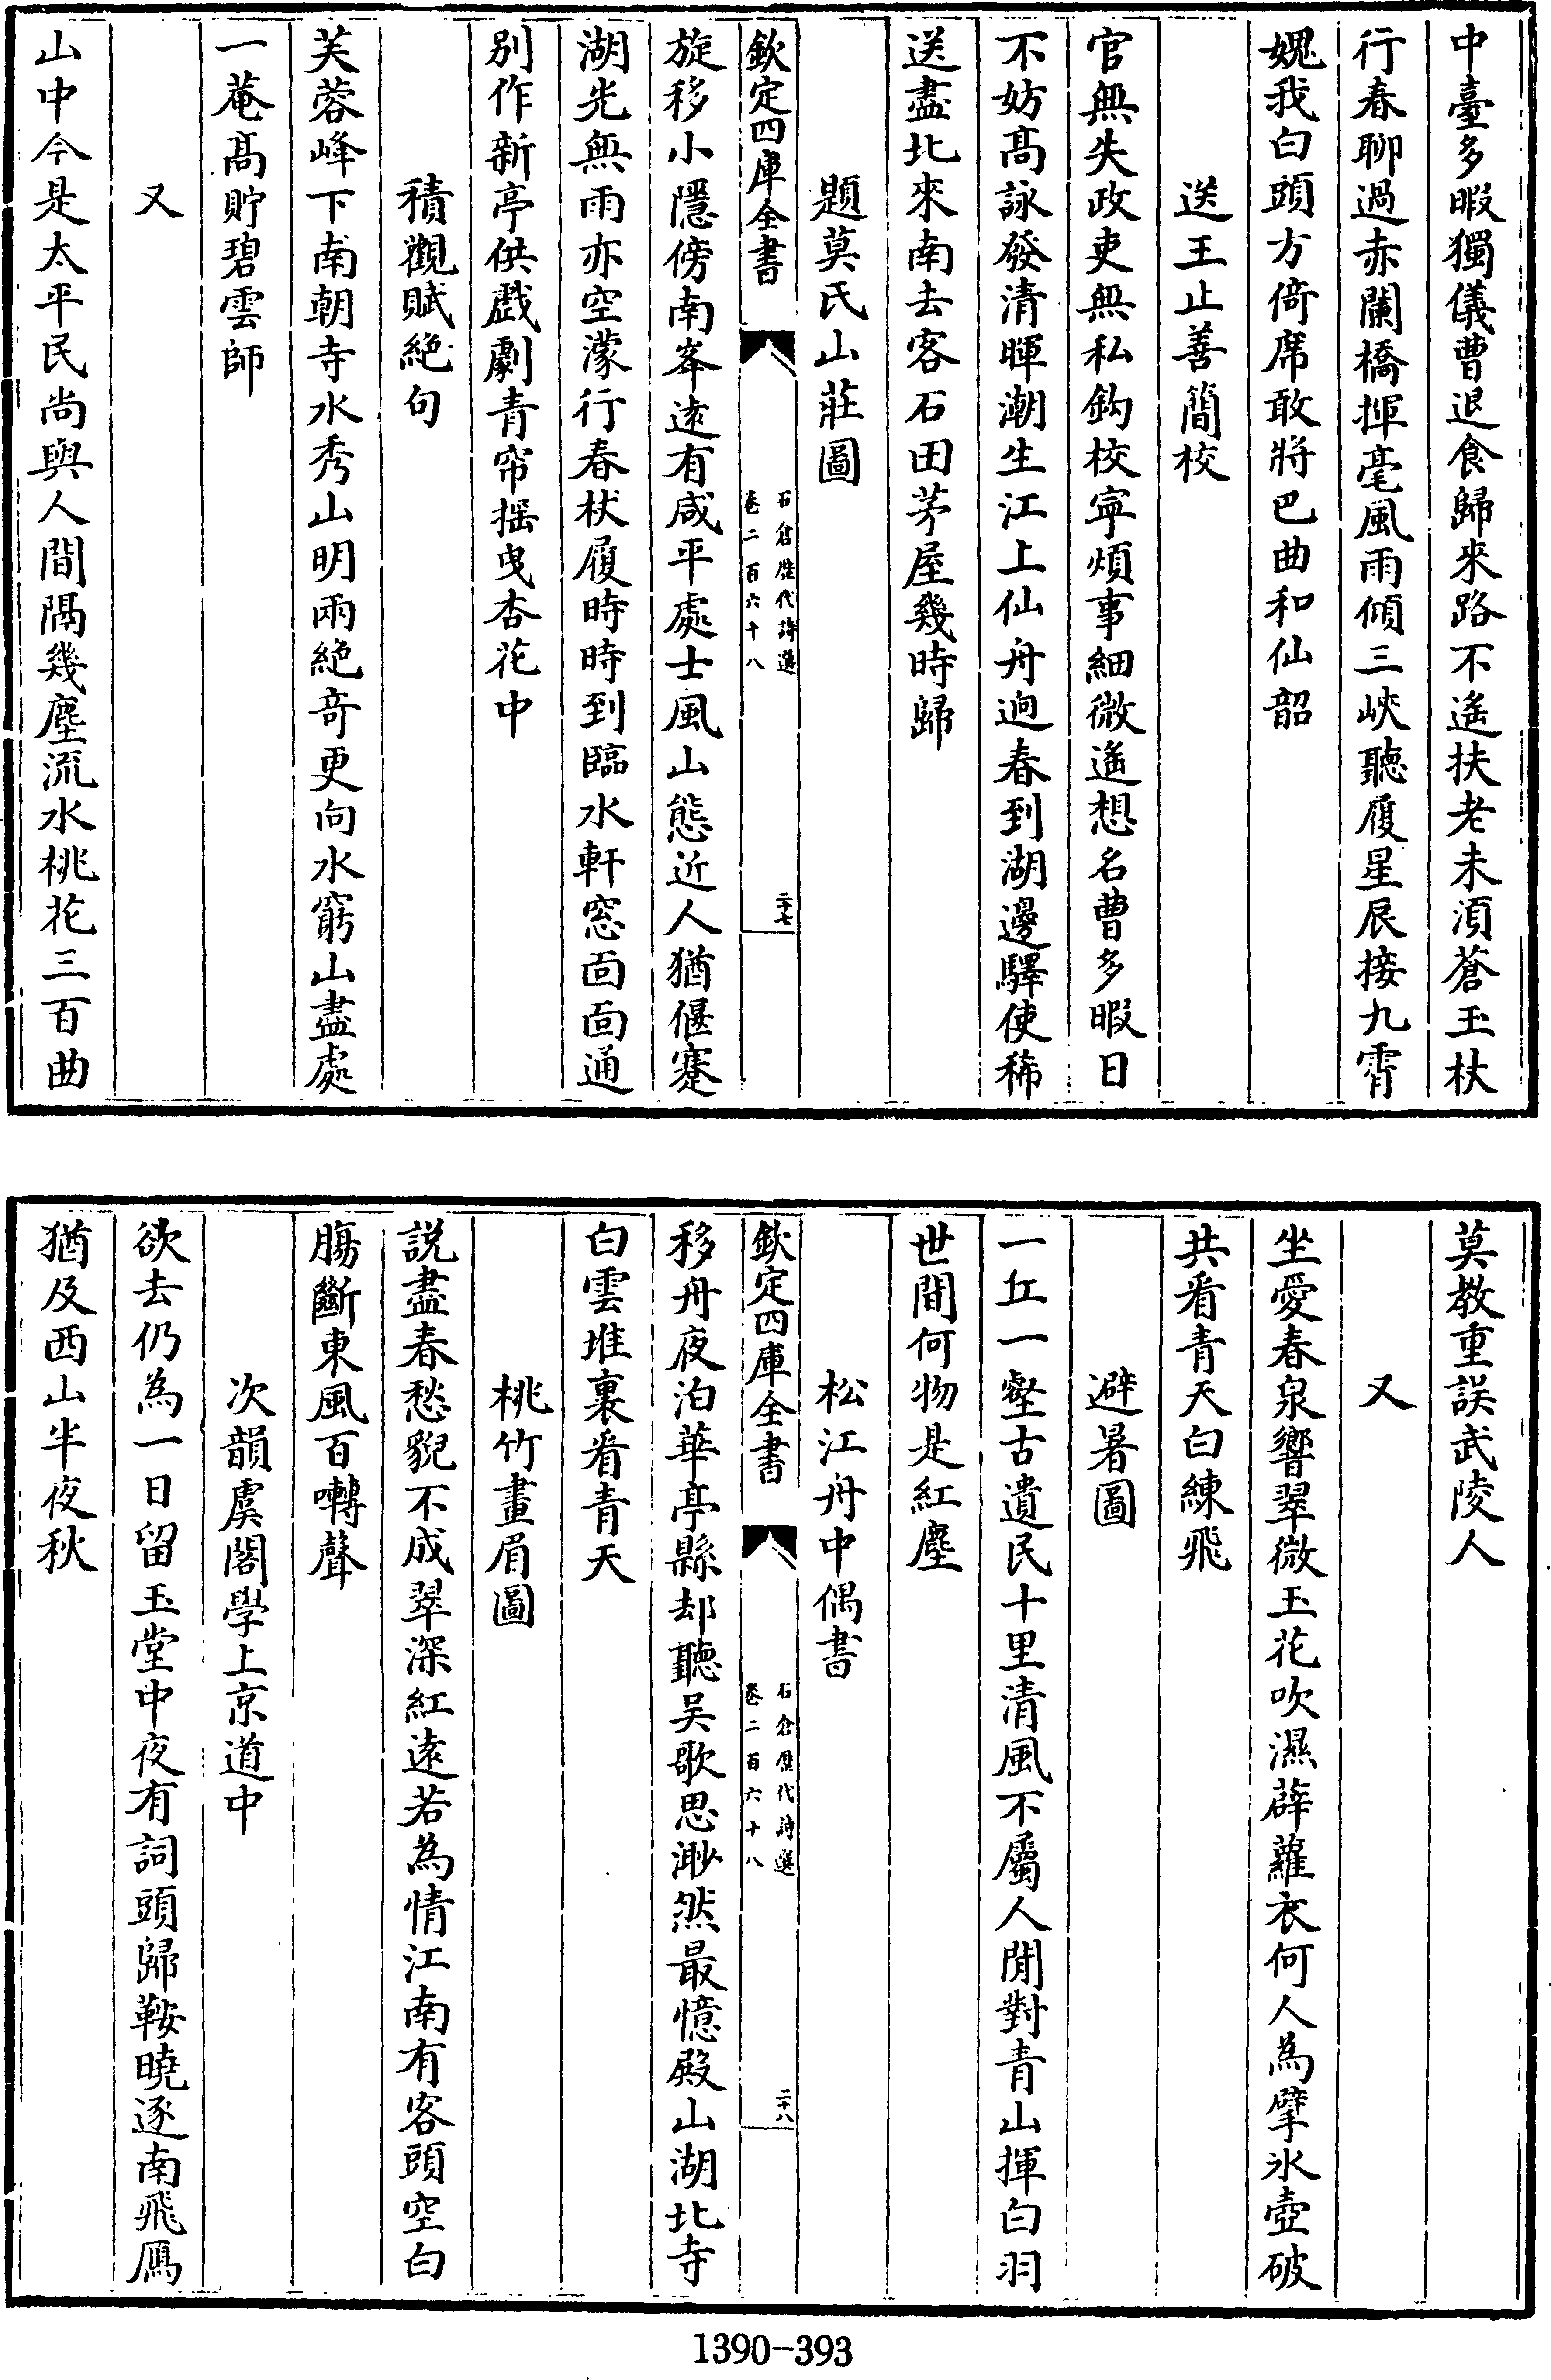 中臺多暇獨儀曹退食歸來路不遙扶老未須蒼玉杖
行春聊過赤闌橋揮毫風雨傾三峽聽履星辰接九霄
媿我白頭方倚席敢將巴曲和仙韶
送王止善簡校
官無失政吏無私鈎校寧煩事細微遙想名曹多暇日
不妨髙詠發清暉潮生江上仙舟逈春到湖邊驛使稀
送盡北來南去客石田茅屋幾時歸
題莫氏山莊圖
欽定四庫全書
石倉歷代詩選
卷二百六十八
二十七
旋移小隱傍南峯逺有咸平處士風山態近人猶偃蹇
湖光無雨亦空濛行春杖履時時到臨水軒窓面面通
别作新亭供戲劇青帘揺曳杏花中
積觀賦絶句
芙蓉峰下南朝寺水秀山明兩絶奇更向水窮山盡處
一菴髙貯碧雲師
又
山中今是太平民尚與人間隔幾塵流水桃花三百曲
莫教重誤武陵人
又
坐愛春泉響翠微玉花吹濕薜蘿衣何人為擘氷壺破
共看青天白練飛
避暑圖
一丘一壑古遺民十里清風不屬人閒對青山揮白羽
世間何物是紅塵
松江舟中偶書
欽定四庫全書
石倉歷代詩選
卷二百六十八
二十八
移舟夜泊華亭縣却聽吳歌思渺然最憶殿山湖北寺
白雲堆裏看青天
桃竹畫眉圖
説盡春愁貌不成翠深紅逺若為情江南有客頭空白
腸斷東風百囀聲
次韻虞閣學上京道中
欲去仍為一日留玉堂中夜有詞頭歸鞍曉逐南飛鴈
猶及西山半夜秋
1390-393